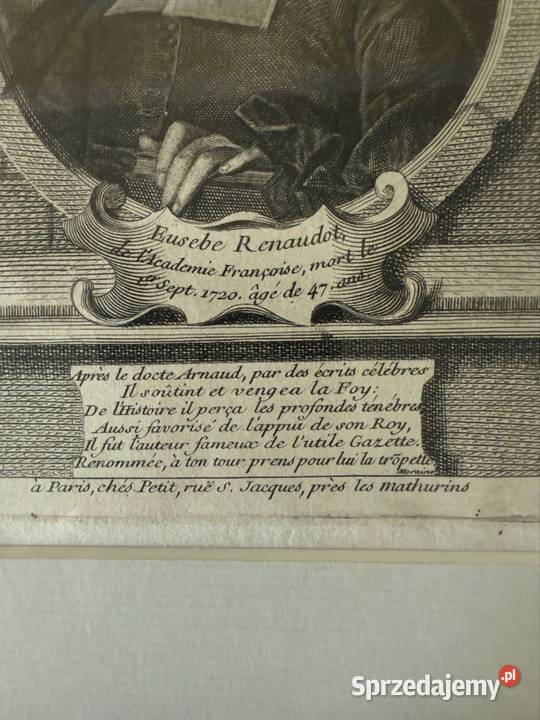 Eusebe Renaudot,
de l'Academie Françoise, mort le
1er Sept. 1720. âgé de 47. ans
Après le docte Arnaud, par des écrits célébres
Il soûtint et vengea la Foy:
De l'Histoire il perça les profondes ténébres,
Aussi favorisé de l'appui de son Roy,
Il fut l'auteur fameux de l'utile Gazette.
Renommée, à ton tour prens pour lui la trõpette.
Moraine
à Paris, chés Petit, ruë S. Jacques, près les mathurins
Sprzedajemy.pl